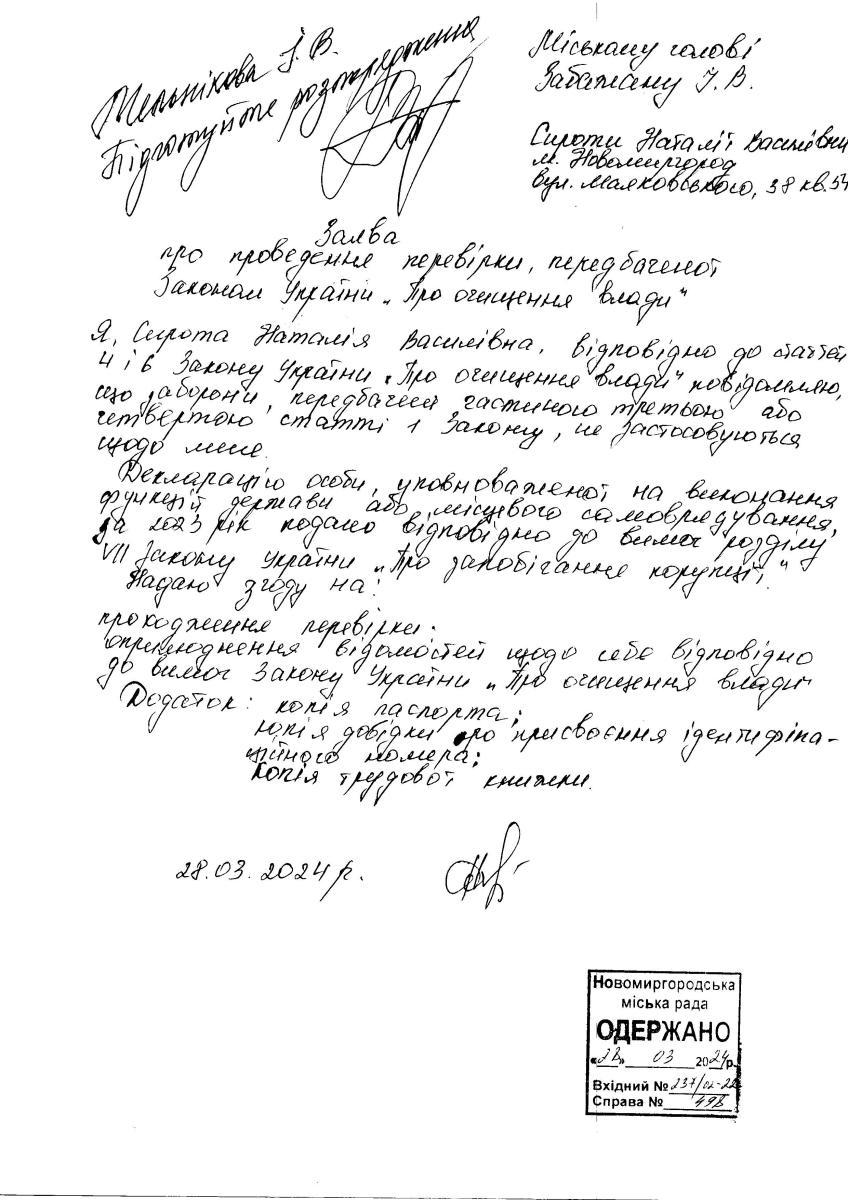 Мельнікова І. В.
Підготуйте розпорядження
Міському голові
Забажану І. В.
Сироти Наталії Василівни
м. Новомиргород
вул. Маяковського, 38 кв.54
Заява
про проведення перевірки, передбаченої
Законом України „Про очищення влади"
Я, Сирота Наталія Василівна, відповідно до статей
4 і 6 Закону України „Про очищення влади" повідомляю,
що заборони, передбачені частиною третьою або
четвертою статті 1 Закону, не застосовуються
щодо мене.
Декларацію особи, уповноваженої на виконання
функцій держави або місцевого самоврядування,
за 2023 рік подано відповідно до вимог розділу
VII Закону України „Про запобігання корупції."
Надаю згоду на:
проходження перевірки.
оприлюднення відомостей щодо себе відповідно
до вимог Закону України „Про очищення влади"
Додаток: копія паспорта;
копія довідки про присвоєння ідентифіка-
ційного номера;
копія трудової книжки.
28.03.2024 р.
Новомиргородська
міська рада
ОДЕРЖАНО
«28» 03 2024 р.
Вхідний № 237/02-22
Справа № 498